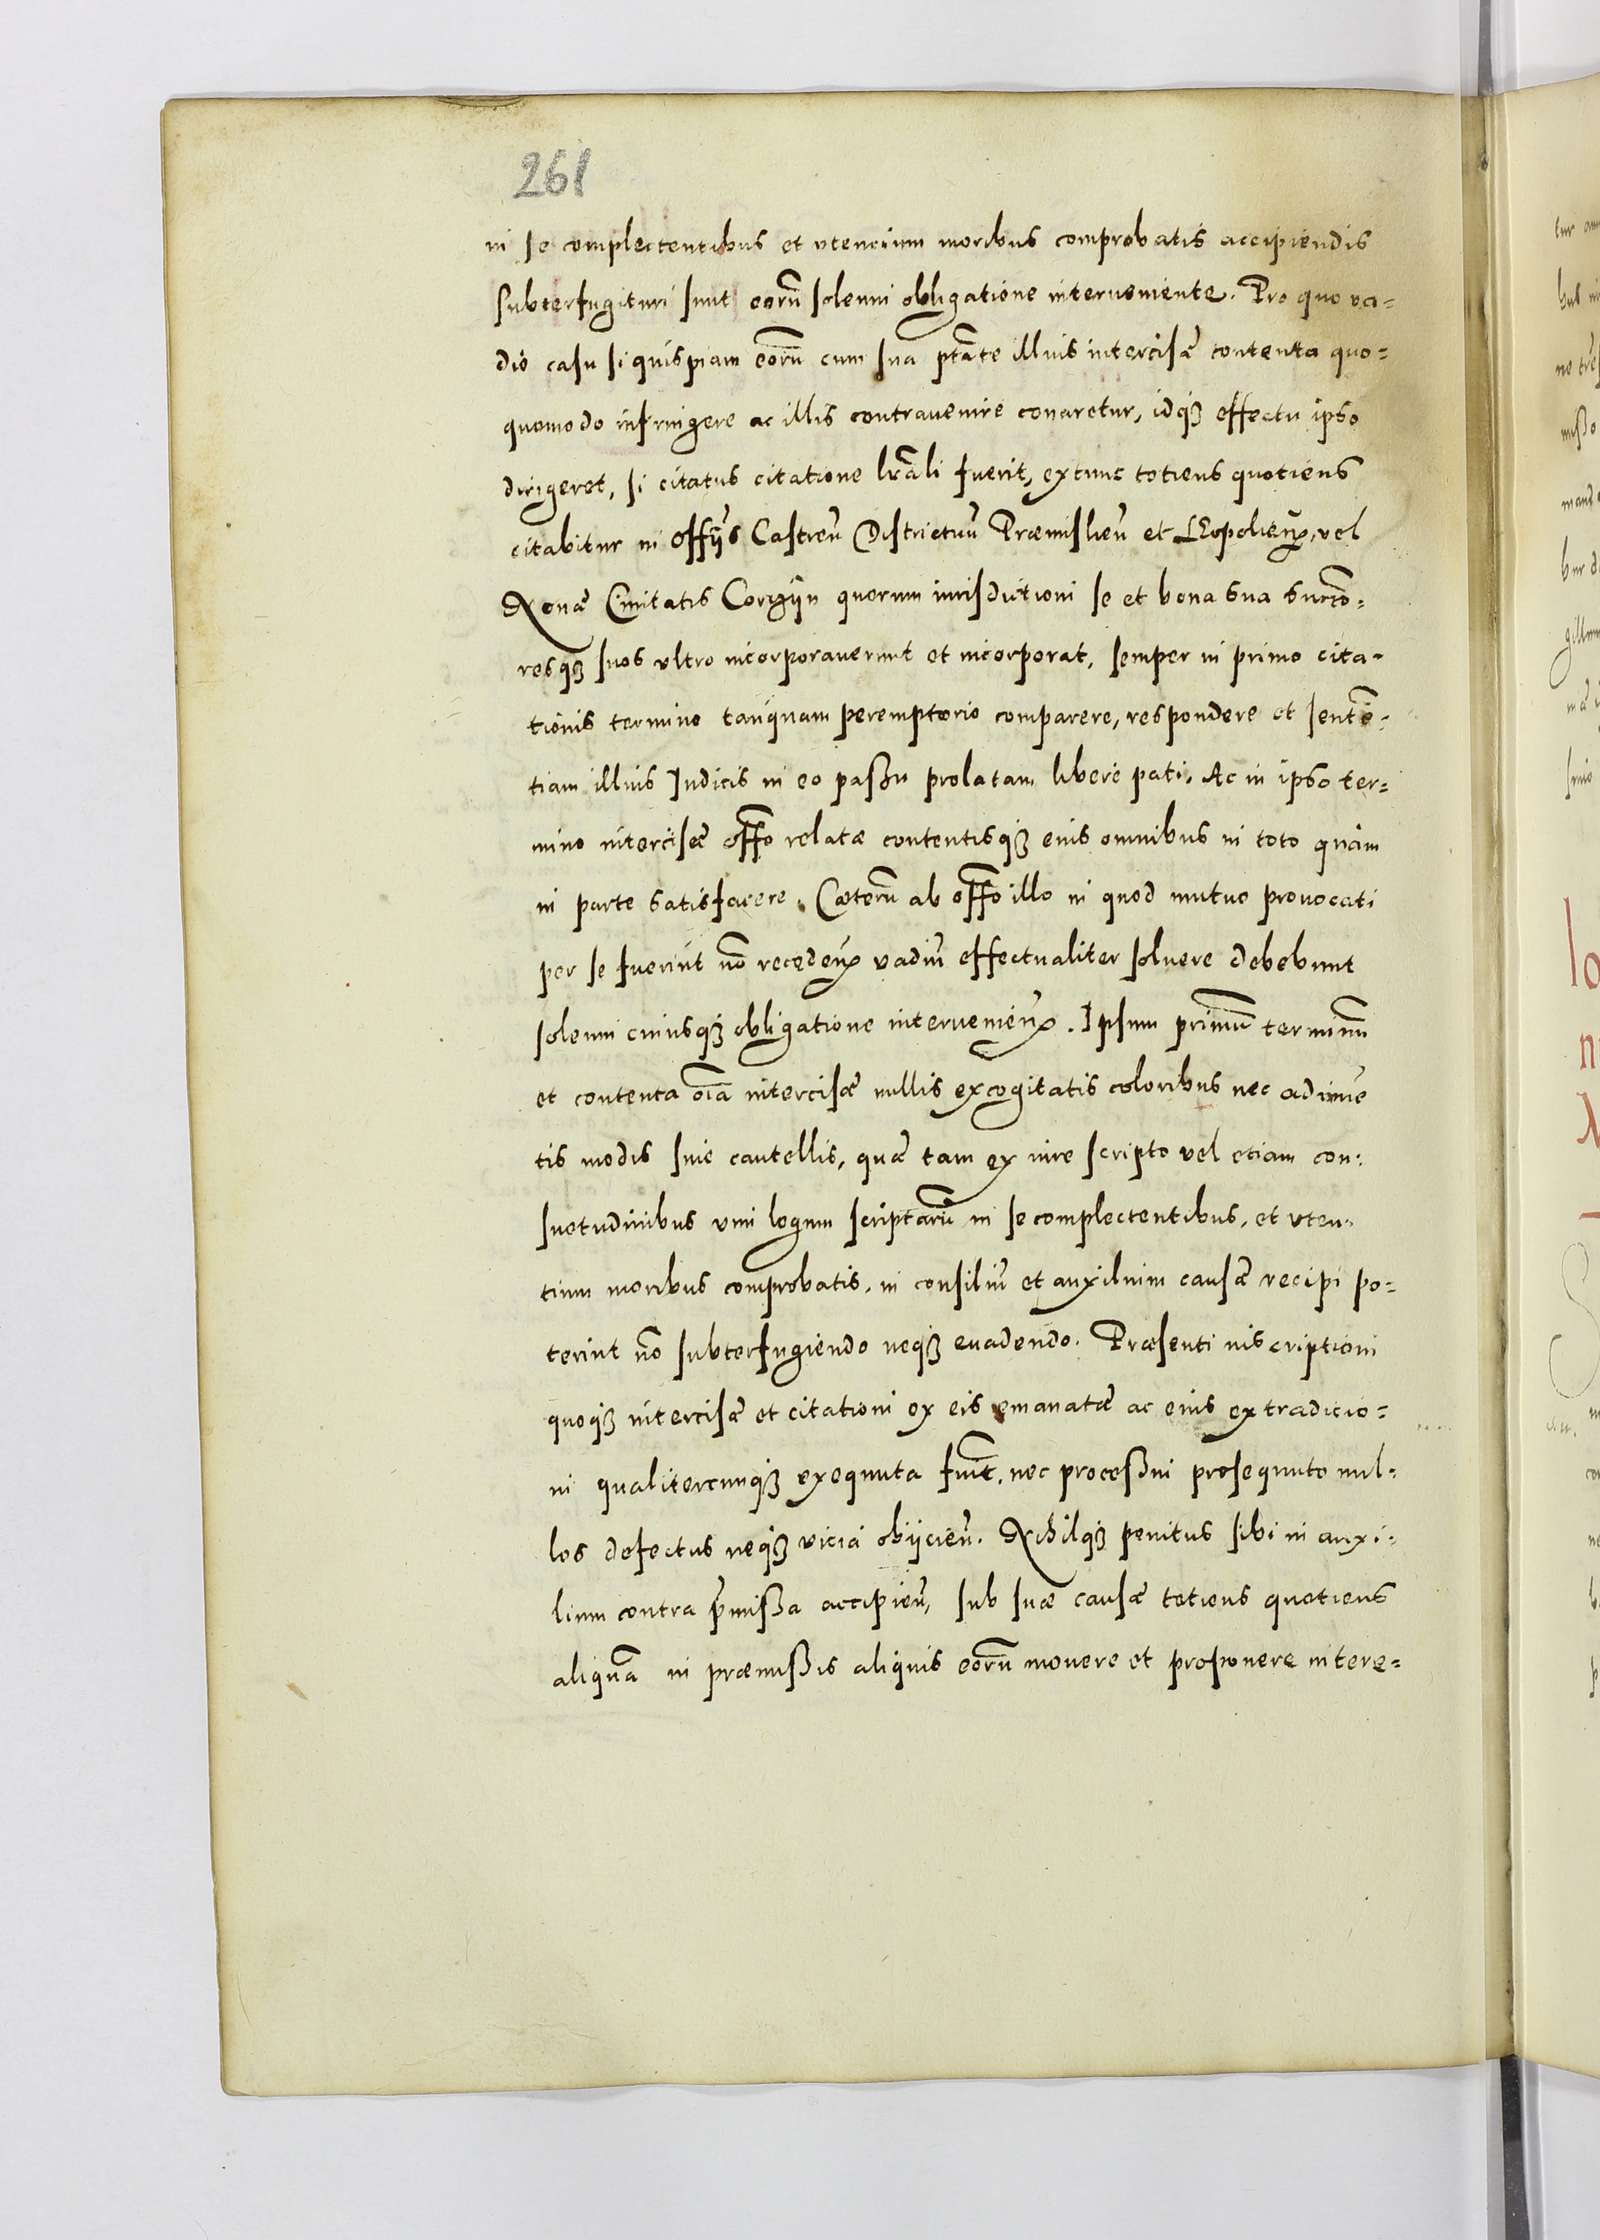 261
in se complectentibus et vtencium moribus comprobatis accipiendis
subterfugituri sunt eorũ solenni obligatione interueniente. Pro quo va=
dio casu si quispiam eorũ cum sua ptãte illius intercisæ contenta quo=
quomodo infringere ac illis contrauenire conaretur, idq; effectu ipso
dirigeret, si citatus citatione lrãli fuerit, extunc totiens quotiens
citabitur in offys Castreñ Districtuũ Præmislieñ et Leopolieñ, vel
Ciuitatis quorum iurisdictioni se et bona sua succo=
resq; suos vltro incorporauerunt et incorporat, semper in primo cita=
tionis termino tanquam peremptorio comparere, respondere et senten=
tiam illius Iudicis in eo paßu prolatam libere pati. Ac in ipso ter=
mino intercisæ offo relatæ contentisq; eius omnibus in toto quàm
in parte satisfacere. Cæterũ ab offo illo in quod mutuo prouocati
per se fuerint nõ recedeñ vadiũ effectualiter soluere debebunt
solenni cuiusq; obligatione interuenieñ. Ipsum primũ terminũ
et contenta oĩa intercisæ nullis excogitatis coloribus nec adinue
tis modis siue cautellis, quæ tam ex iure scripto vel etiam con=
suetudinibus vim legum scriptarũ in se complectentibus, et vten=
tium moribus comprobatis, in consiliũ et auxilium causæ recipi po=
terint nõ subterfugiendo neq; euadendo. Præsenti inscriptioni
quoq; intercisæ et citationi ex eis emanatæ ac eius extradicio=
ni qualitercunq; exequuta fuit, nec proceßui prosequuto nul=
los defectus neq; vicia obijcieñ. Nihilq; penitus sibi in auxi=
lium contra p̃mißa accipieñ, sub suæ causæ totiens quotiens
aliquã in præmißis aliquis eorũ mouere et proponere intere=